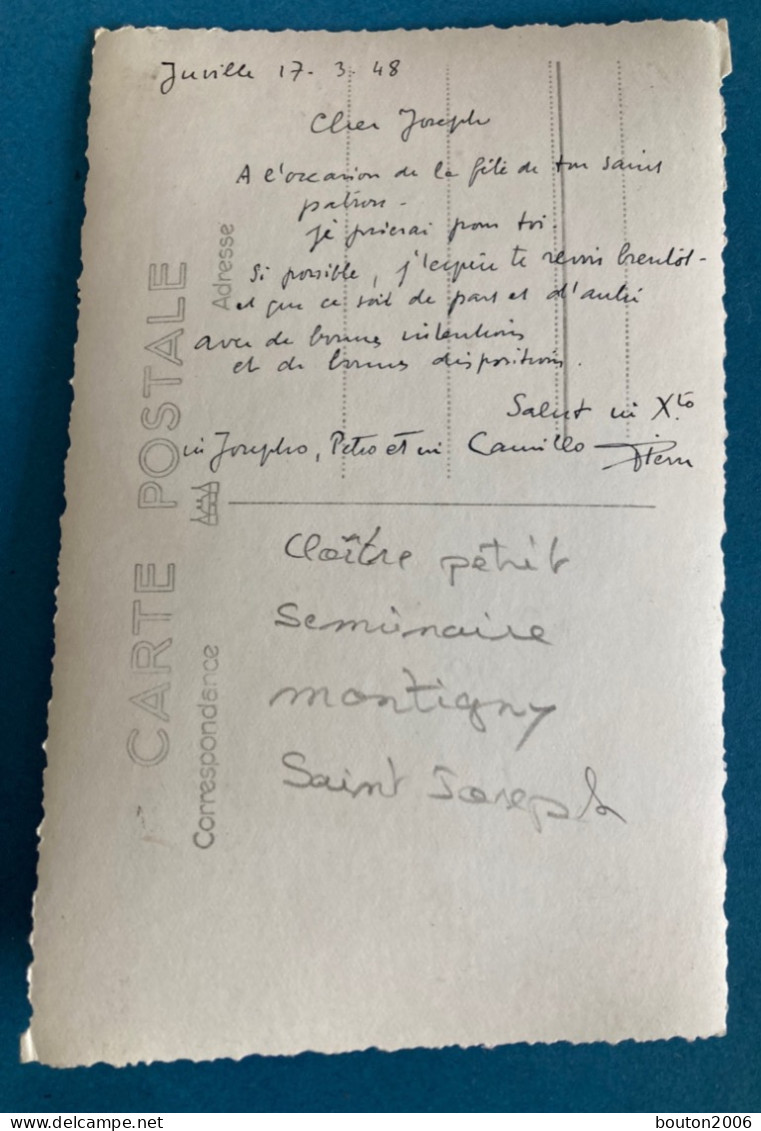 Juville 17-3-48
Cher Joseph
A l'occasion de la fête de ton saint
patron -
je prierai pour toi.
Si possible, j'espère te revoir bientôt -
et que ce soit de part et d'autre
avec de bonnes intentions
et de bonnes dispositions.
Salut in Xto
in Josepho, Petro et in Camillo Pierre
CARTE POSTALE
Adresse
Correspondance
Cloître pétit
Seminaire
montigny
Saint Joseph
bouton2006